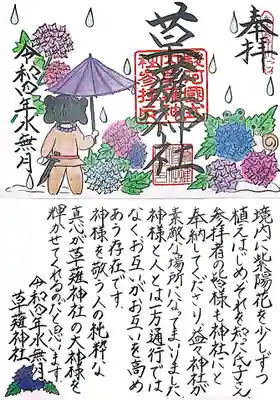 奉拝
草薙神社
令和四年水無月
境内に紫陽花を少しずつ
植えはじめそれを知った氏子さん
参拝者の皆様も神社にと
奉納してくださり益々神社が
素敵な場所になってまいりました
神様と人とは一方通行では
なくお互いがお互いを高め
あう存在です
神様を敬う人の純粋な
真心が草薙神社の大神様を
輝かせてくれるのだと思います
令和四年水無月
草薙神社